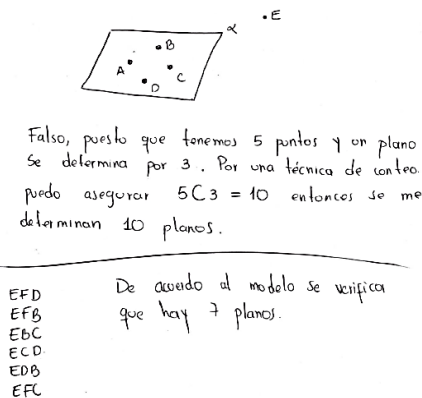 α
.E
B
A
C
D
Falso, puesto que tenemos 5 puntos y un plano
se determina por 3. Por una técnica de conteo.
puedo asegurar 5C3 = 10 entonces se me
determinan 10 planos.
De acuerdo al modelo se verifica
que hay 7 planos.
EFD
EFB
EBC
ECD.
EDB
EFC